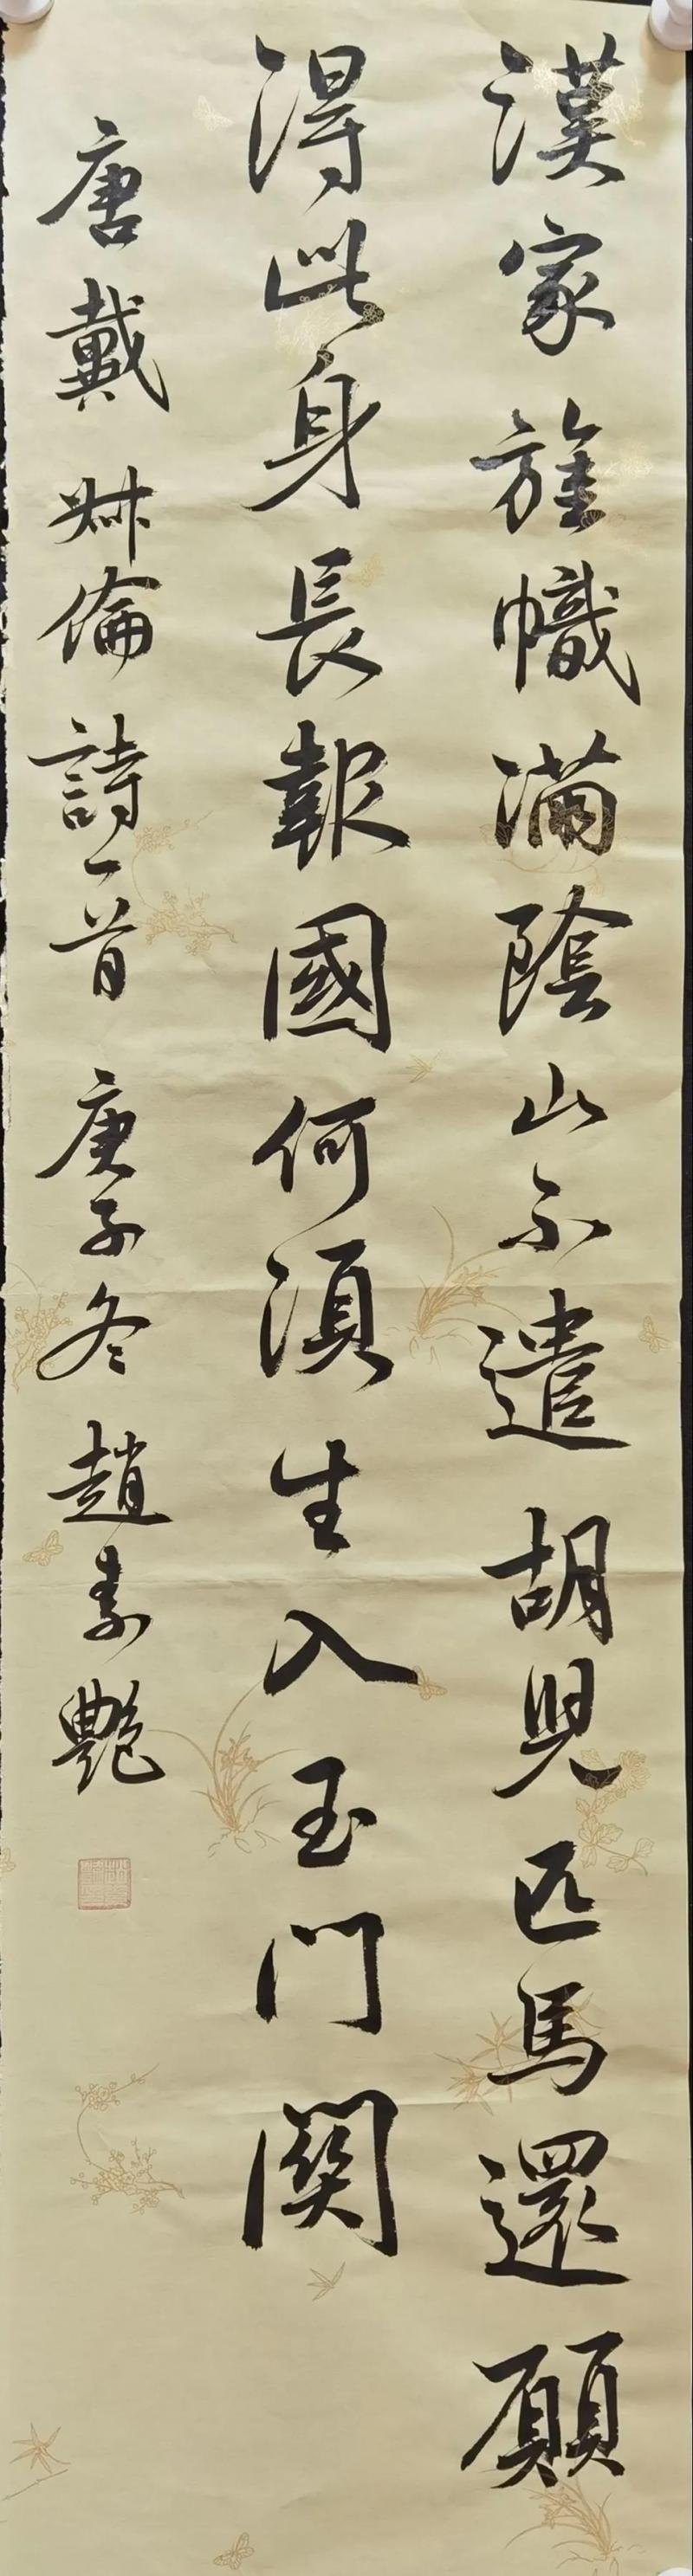 漢家旌幟滿陰山不遣胡兒匹馬還願
得此身長報國何須生入玉門關
唐戴叔倫詩一首 庚子冬 趙素艷